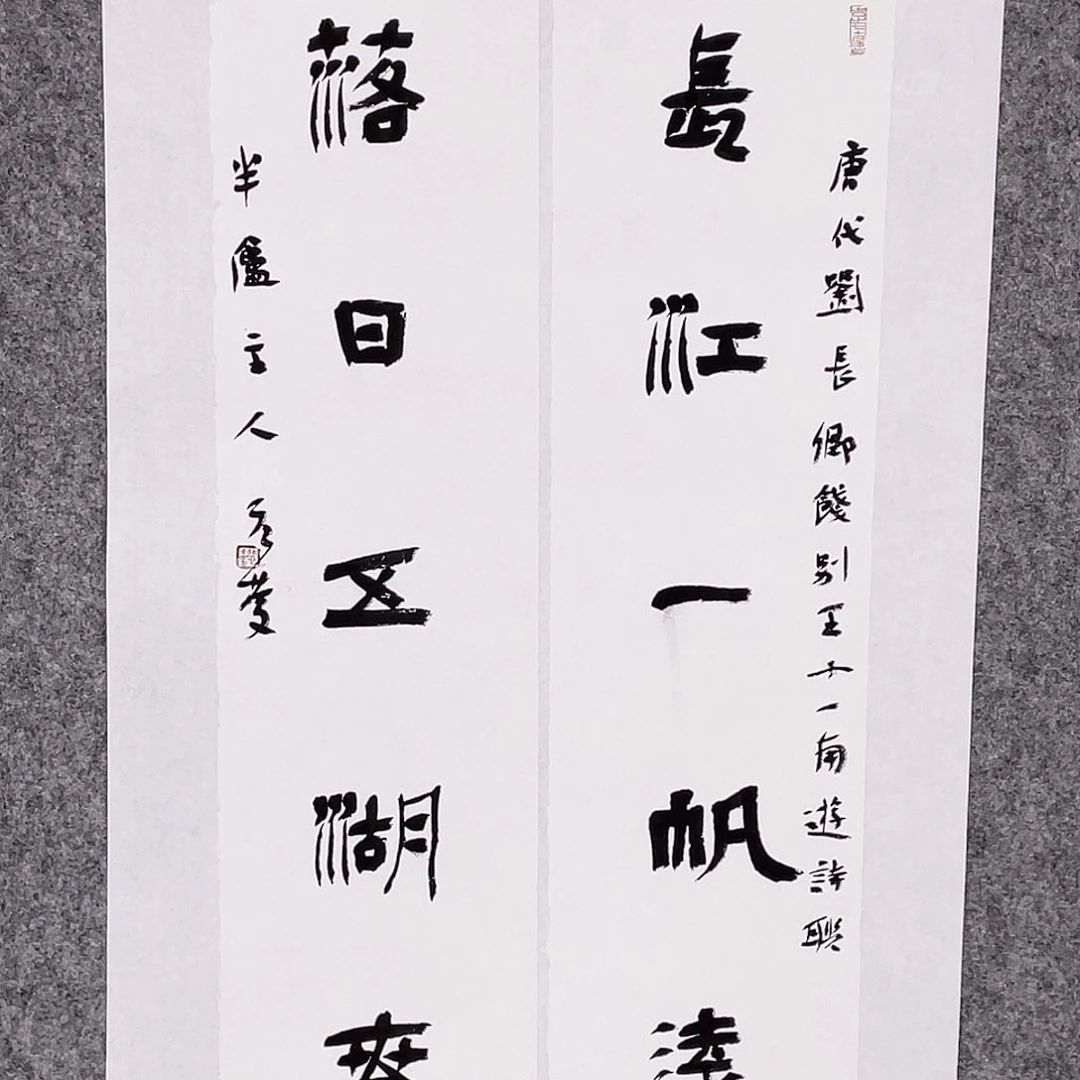 唐代劉長卿餞別王十一南遊詩聯
長江一帆遠
落日五湖春
半盧主人